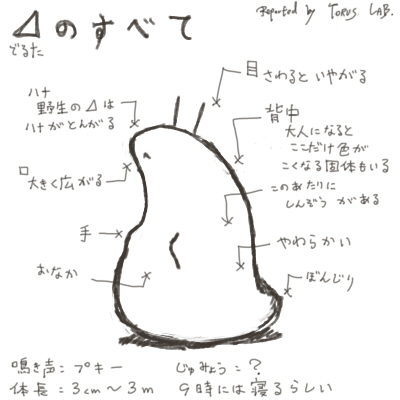 ⊿のすべて
でるた
Reported by TORUS LAB.
目 さわると いやがる
ハナ
野生の⊿は
ハナがとんがる
背中
大人になると
ここだけ色が
こくなる固体もいる
口
大きく広がる
このあたりに
しんぞう がある
手
やわらかい
おなか
ぼんじり
鳴き声：プキー
じゅみょう：？
体長：3cm～3m
9時には寝るらしい